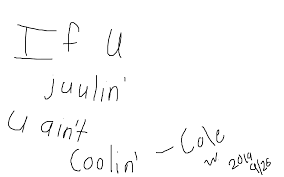 If u
juulin'
u ain't
coolin' - Cole
w 2019
9/26